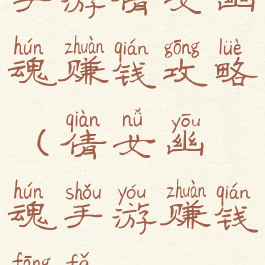 手游倩女幽
hún zhuàn qián gōng lüè
魂赚钱攻略
qiàn nǚ yōu
(倩女幽
hún shǒu yóu zhuàn qián
魂手游赚钱
fāng fǎ